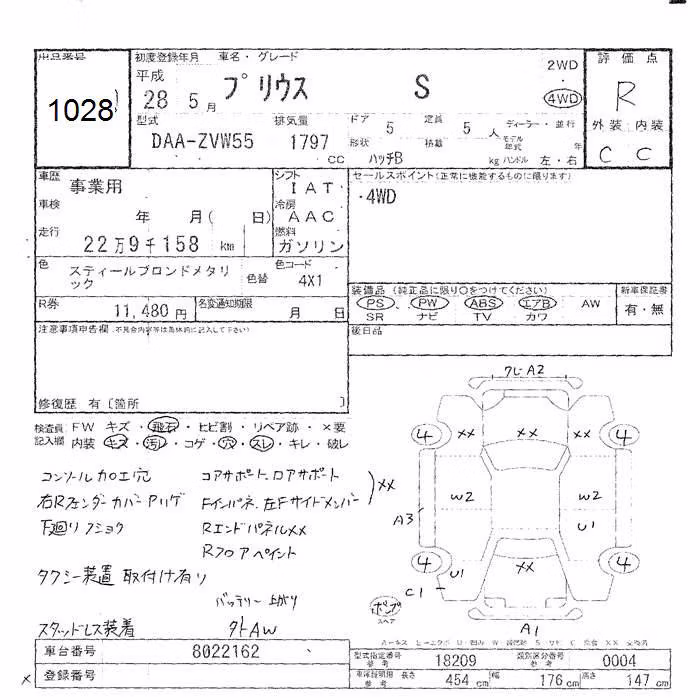 出品番号
1028
初度登録年月 車名・グレード
平成
28 5月 プリウス S
2WD
4WD
評価点
R
外装 内装
C C
型式 排気量
DAA-ZVW55 1797 CC
ドア 5 定員 5 人 ディーラー・並行
形状 ハッチB 積載 kg モデル年式 年
ハンドル 左・右
車歴 事業用
シフト IAT
車検 年 月( 日)
冷房 AAC
走行 22万9千158 km
燃料 ガソリン
色 スティールブロンドメタリック
色替
色コード 4X1
R券 11,480円
名変通知期限 月 日
セールスポイント(正常に機能するものに限ります)
・4WD
装備品 (純正品に限り○をつけてください)
PS、PW ABS エアB AW
SR ナビ TV カワ
新車保証書
有・無
後日品
注意事項申告欄 .不具合内容等は具体的に記入して下さい)
修復歴 有〔箇所 〕
検査員記入欄
FW キズ・飛石・ヒビ割・リペア跡・×要
内装 キズ・汚レ・コゲ・穴・スレ・キレ・破レ
コンソール加工穴 コアサポート.ロアサポート
右Rフェンダーカバークリケ Fインパネ.左Fサイドメンバー ××
下廻りフショク RエンドパネルXX
Rフロアペイント
タクシー装置取付け有り
バッテリー上がり
スタッドレス装着 外AW
クレA2
4 XX XX XX 4
W2 W2
A3 U1
4 U1 XX 4
C1
ボンプ
スペア
A1
車台番号 8022162
登録番号
×
型式指定番号 参考 18209
類別区分番号 参考 0004
車庫証明用 参考 長さ 454 cm 幅 176 cm 高さ 147 cm